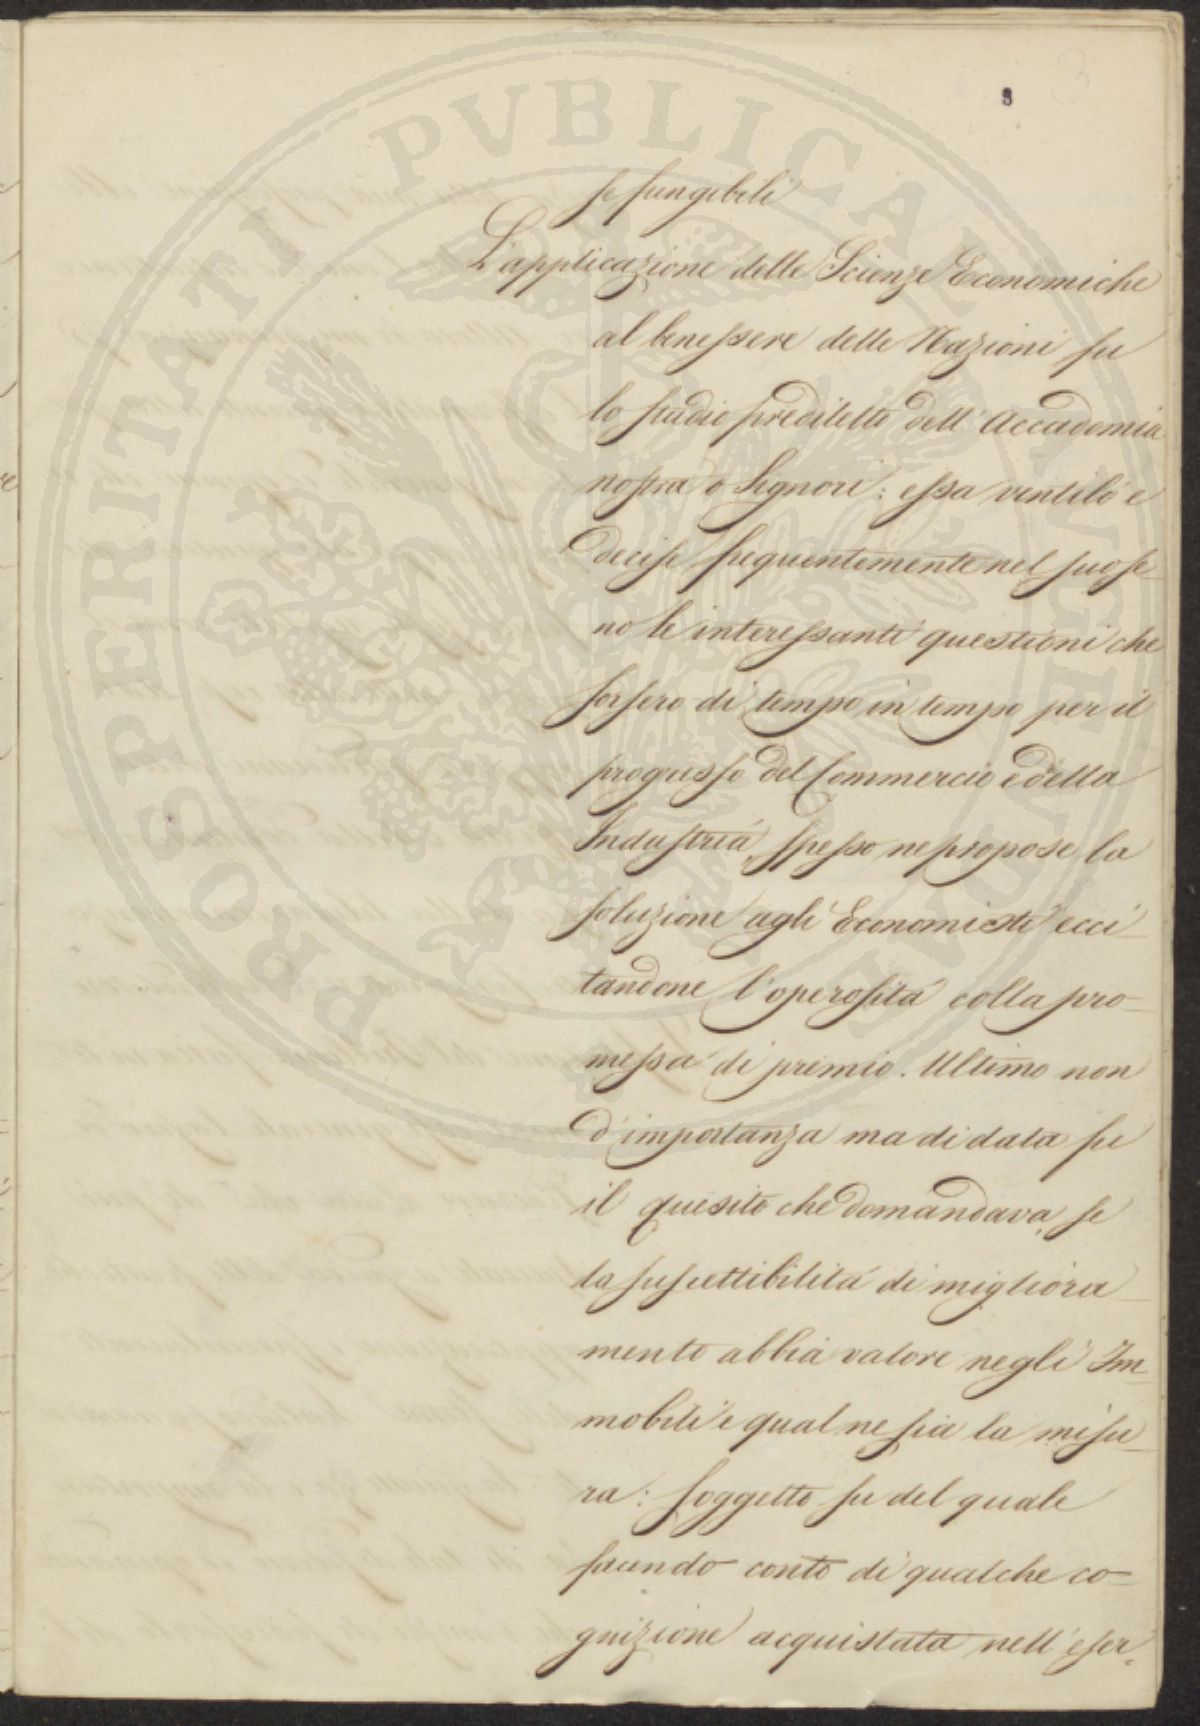 3
3
se fungibili
L'applicazione delle Scienze Economiche
al benessere delle Nazioni fu
lo studio prediletto dell'Accademia
nostra o Signori: essa ventilò e
decise frequentemente nel suo se_
no le interessanti questioni che
sorsero di tempo in tempo per il
progresso del Commercio e della
Industria, spesso ne propose la
soluzione agli Economisti ecci_
tandone l'operosità colla pro_
messa di premio. Ultimo non
d'importanza ma di data fu
il quesito che domandava, se
la suscettibilità di migliora_
mento abbia valore negli Im_
mobili e qual ne sia la misu_
ra: soggetto su del quale
facendo conto di qualche co_
gnizione acquistata nell'eser_
PROSPERITATI PVBLICAE AVGENDAE